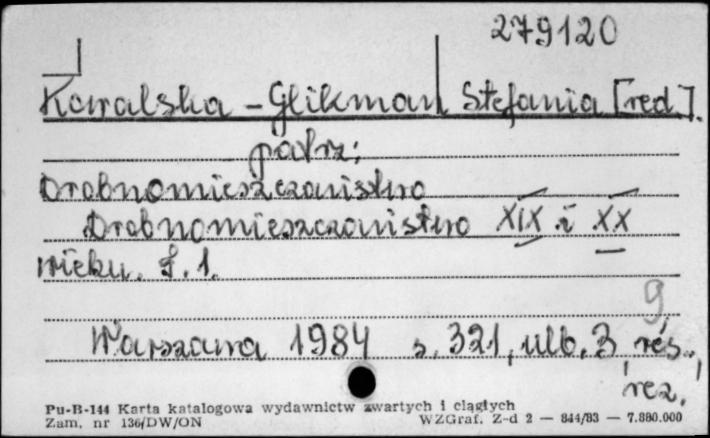 279120
Kowalska - Glikman Stefania [red.].
patrz:
Drobnomieszczaństwo
Drobnomieszczaństwo XIX i XX
wieku. T. 1.
9
Warszawa 1984 s. 321, nlb. 3 rés.,
rez.
Pu-B-144 Karta katalogowa wydawnictw zwartych i ciągłych
Zam. nr 136/DW/ON WZGraf. Z-d 2 — 844/83 — 7.880.000